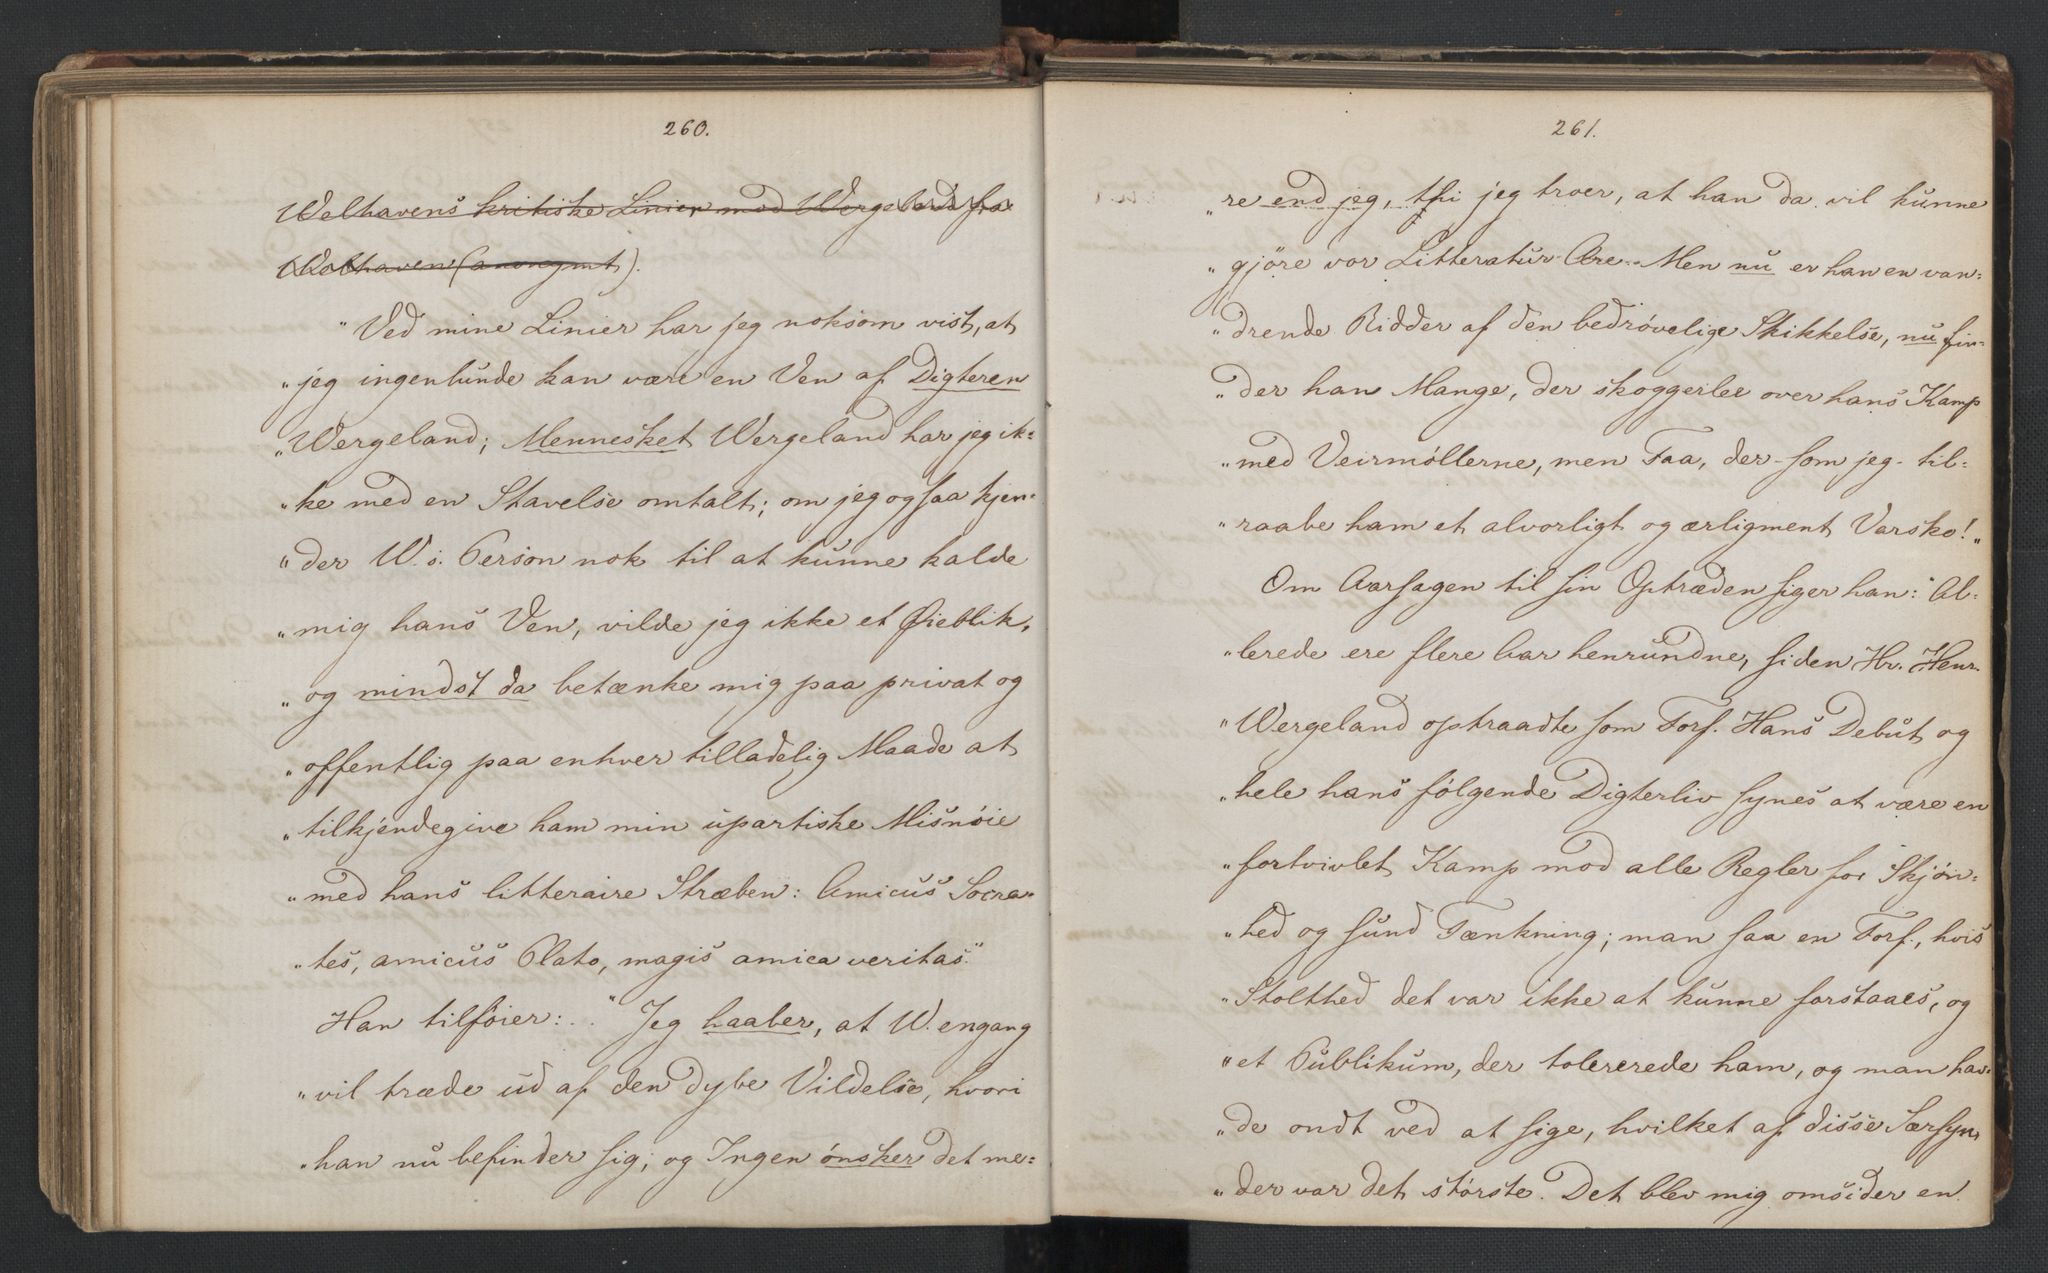 260.
Welhavens kritiske Linier mod Wergeland fra
Welhaven (anonymt).
"Ved mine Linier har jeg noksom vist, at
"jeg ingenlunde kan være en Ven af Digteren
"Wergeland; Mennesket Wergeland har jeg ik=
"ke med en Stavelse omtalt; om jeg ogsaa kjen=
"der W.s. Person nok til at kunne kalde
"mig hans Ven, vilde jeg ikke et Øieblik,
"og mindst da betænke mig paa privat og
"offentlig paa enhver tilladelig Maade at
"tilkjendegive ham min upartiske Misnøie
"med hans litteraire Stræben: Amicus Socra=
"tes, amicus Plato, magis amica veritas."
Han tilføier: .. "Jeg haaber, at W. engang
"vil træde ud af den dybe Vildelse, hvori
"han nu befinder sig; og Ingen ønsker det me=
261.
"re end jeg, thi jeg troer, at han da vil kunne
"gjöre vor Litteratur Ære. Men nu er han en van=
"drende Ridder af den bedrøvelige Skikkelse, nu fin=
"der han Mange, der skoggerlee over hans Kamp
"med Veirmøllerne, men Faa, der - som jeg - til=
"raabe ham et alvorligt og ærligment Varsko!"
Om Aarsagen til sin Optræden siger han: "Al=
"lerede ere flere Aar henrundne, siden Hr. Henr.
"Wergeland optraadte som Forf. Hans Debut og
"hele hans følgende Digterliv synes at være en
"fortvivlet Kamp mod alle Regler for Skjøn=
"hed og sund Tænkning; man saa en Forf., hvis
"Stolthed det var ikke at kunne forstaaes, og
"et Publikum, der tolererede ham, og man hav=
"de ondt ved at sige, hvilket af disse Særsyn=
"der var det største. Det blev mig omsider en